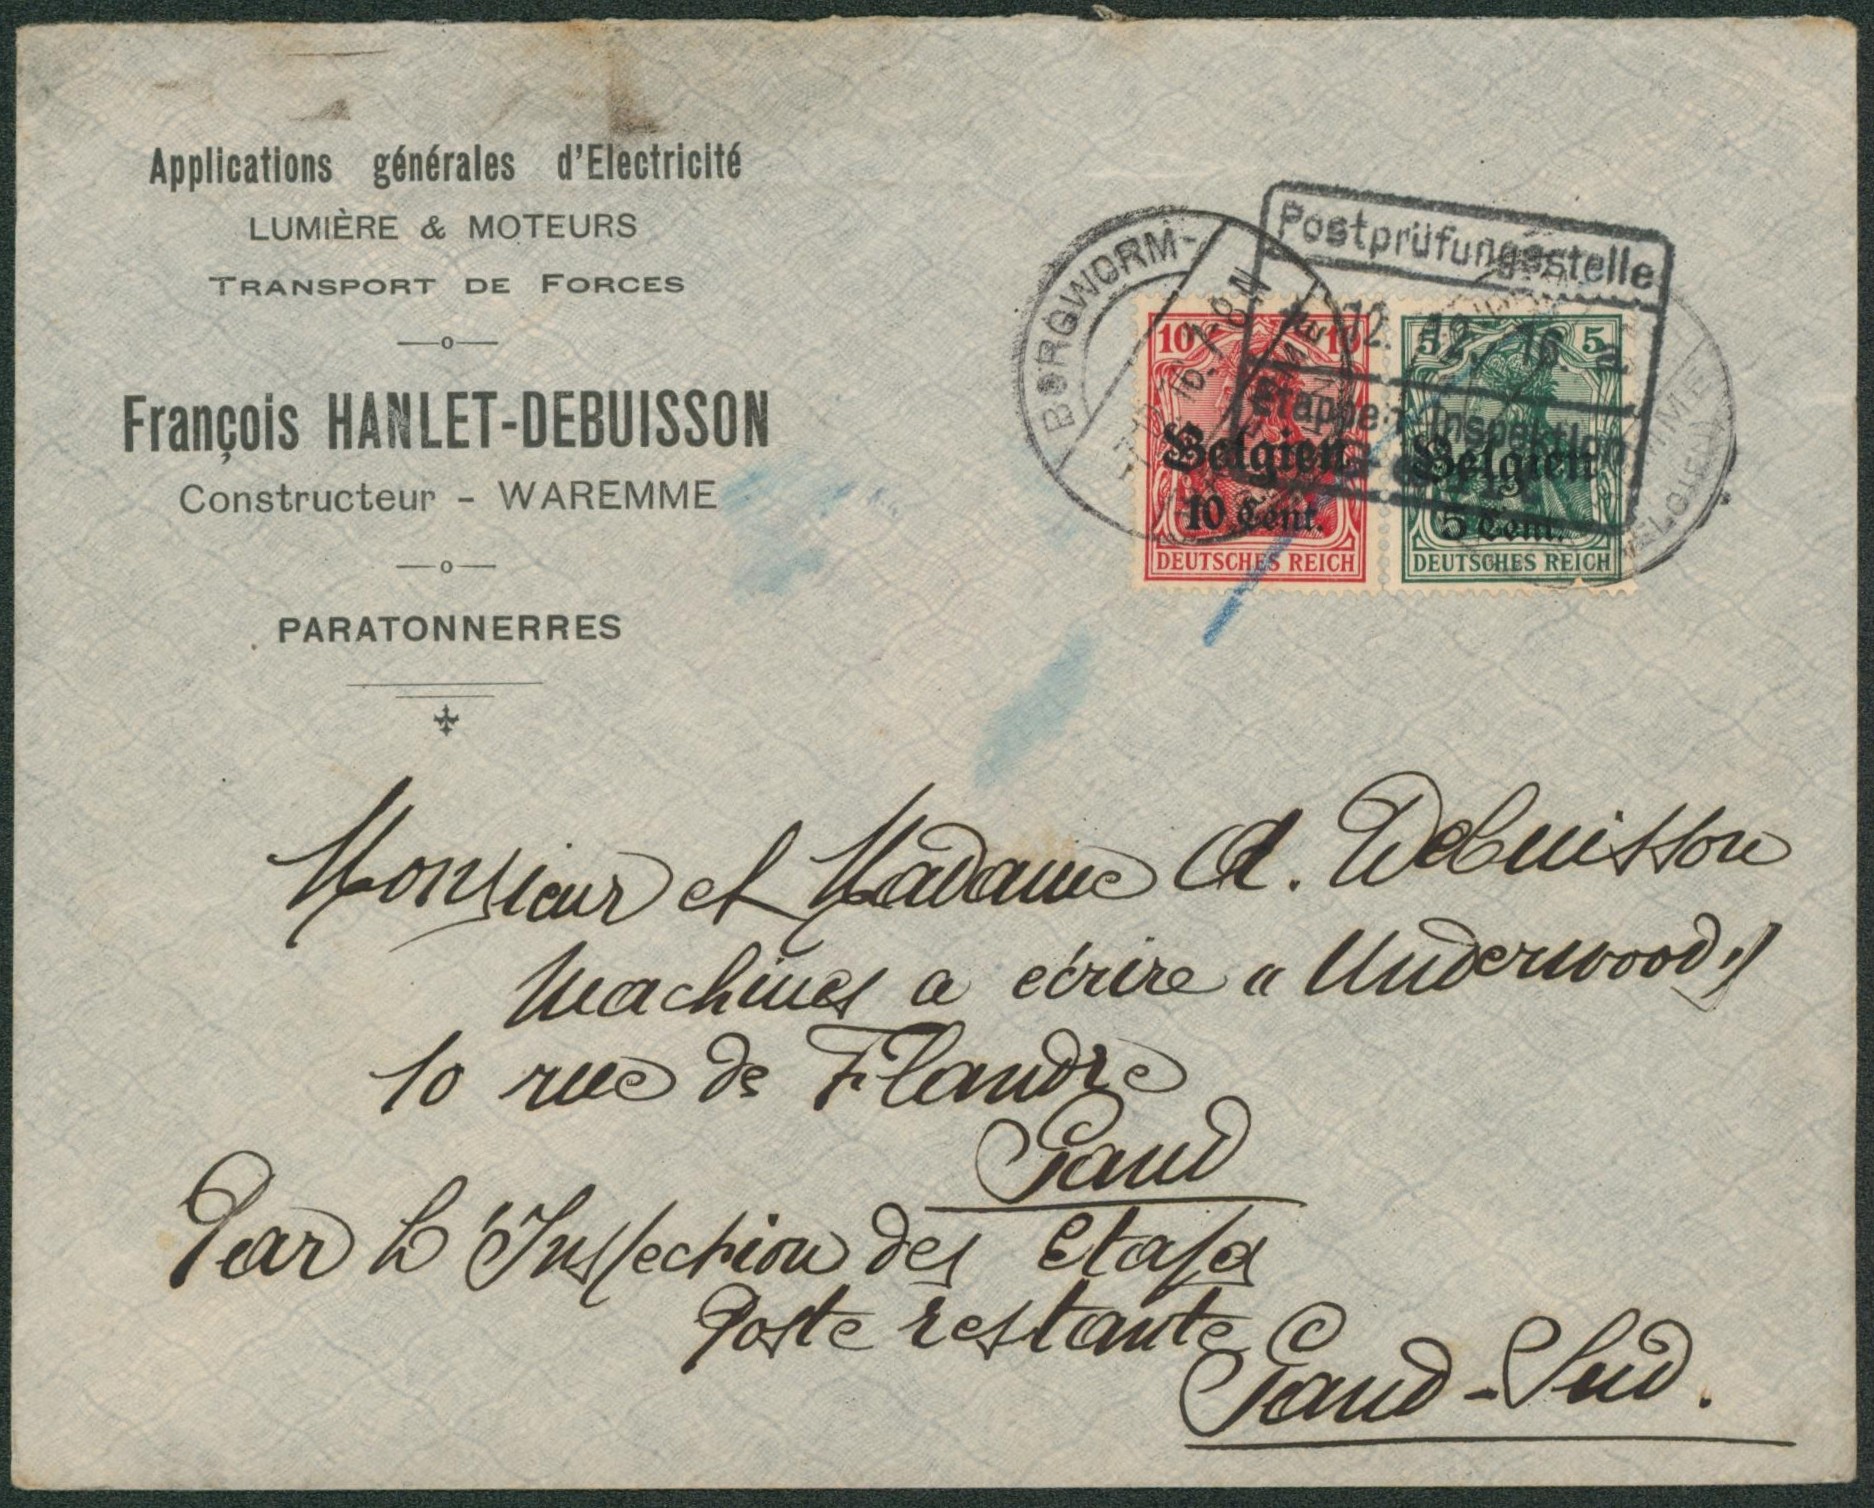 Applications générales d'Electricité
LUMIÈRE & MOTEURS
TRANSPORT DE FORCES
François HANLET-DEBUISSON
Constructeur - WAREMME
PARATONNERRES
Postprüfungsstelle
12. 12. 16. a
Etappen-Inspektion
BORGWORM-
7-8N
10 10
Belgien
10 Cent.
DEUTSCHES REICH
5 5
Belgien
5 Cent.
DEUTSCHES REICH
Monsieur et Madame A. Debuisson
Machines a écrire "Underwood"
10 rue de Flandre
Gand
Par L'Inspection des etapes
Poste restante
Gand-Sud.